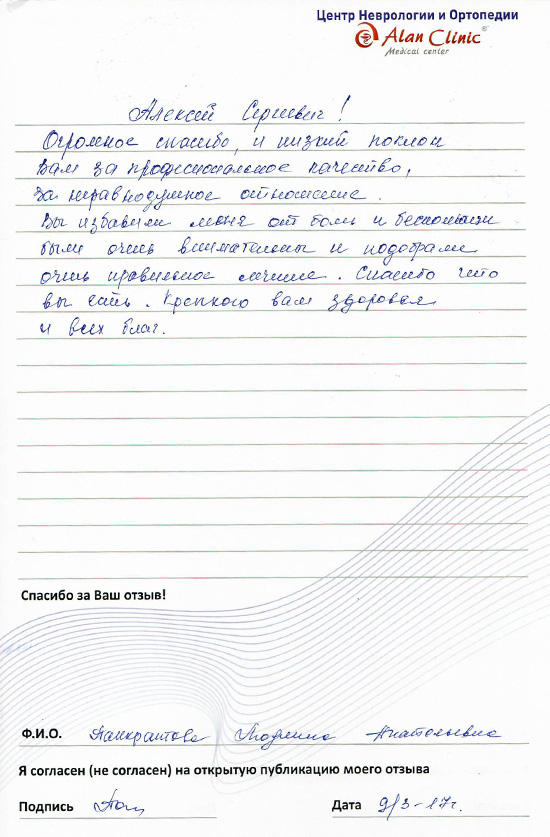 Центр Неврологии и Ортопедии
Alan Clinic®
Medical center
Алексей Сергеевич!
Огромное спасибо, и низкий поклон
вам за профессиональное качество,
за неравнодушное отношение.
Вы избавили меня от боли и
были очень внимательны и
очень правильное лечение. Спасибо что
вы есть. Крепкого вам здоровья
и всех благ.
Спасибо за Ваш отзыв!
Ф.И.О. Панкратова Людмила Анатольевна
Я согласен (не согласен) на открытую публикацию моего отзыва
Подпись Дата 9/3-17г.